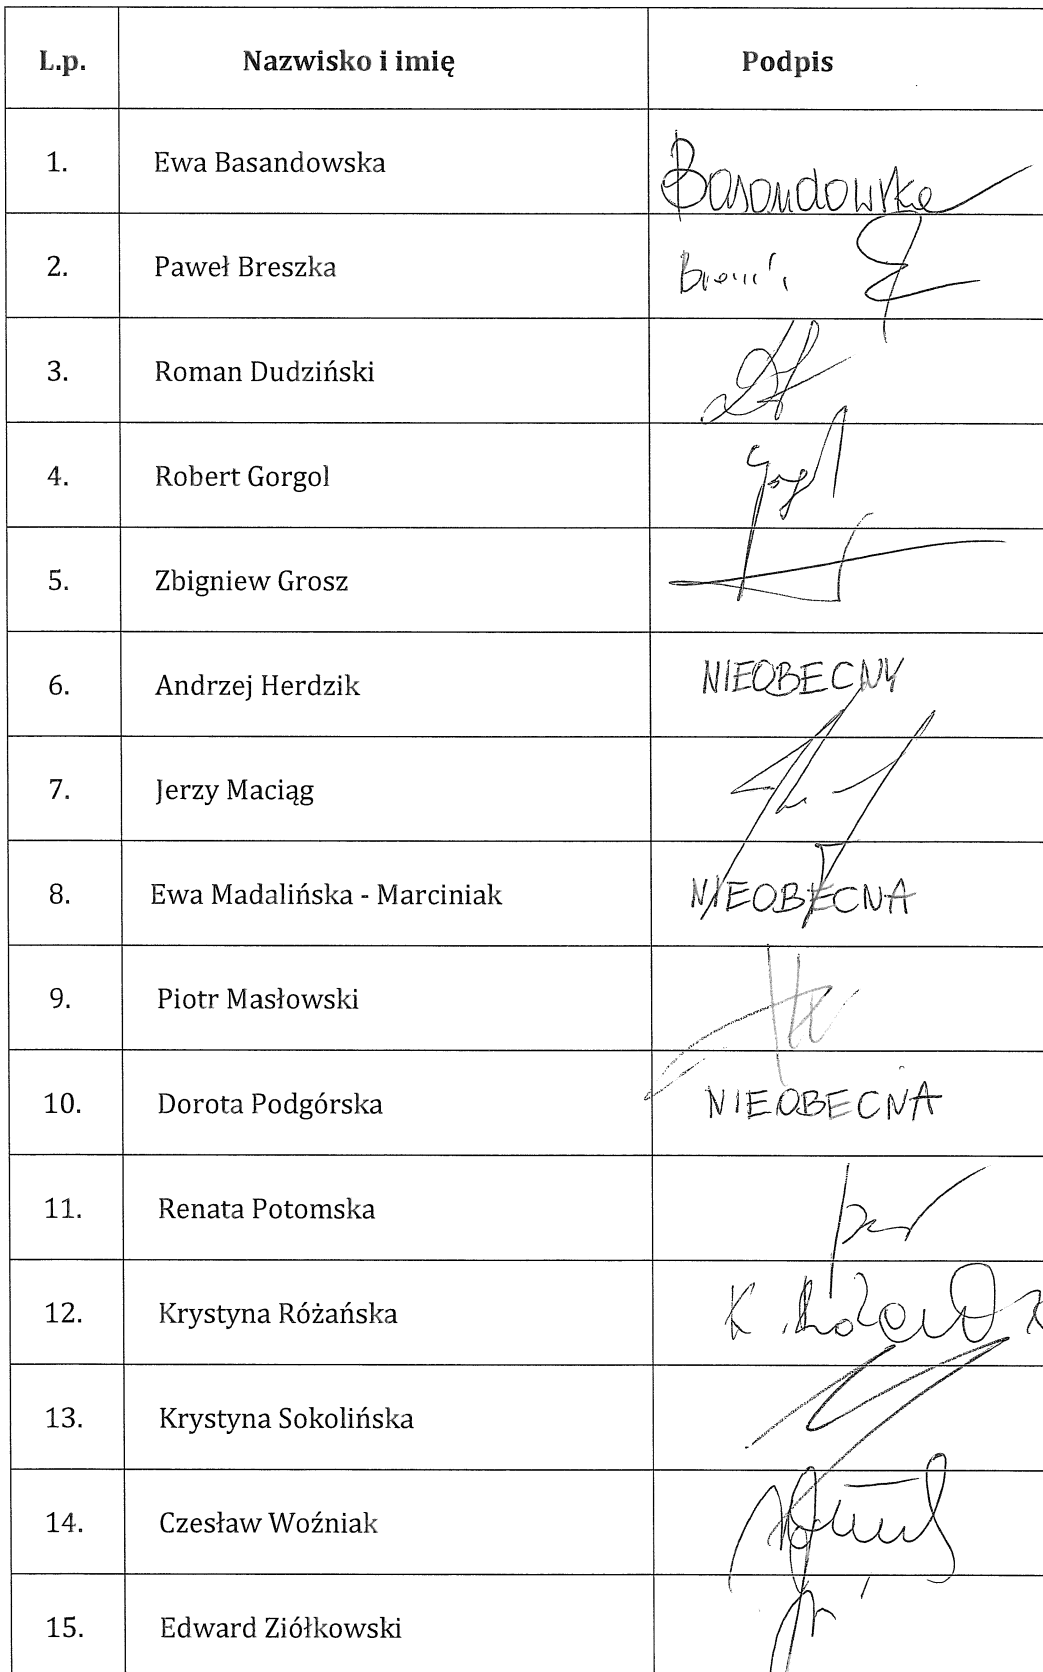 L.p. Nazwisko i imię Podpis
1. Ewa Basandowska Basandowska
2. Paweł Breszka
3. Roman Dudziński
4. Robert Gorgol Gorgol
5. Zbigniew Grosz
6. Andrzej Herdzik NIEOBECNY
7. Jerzy Maciąg
8. Ewa Madalińska - Marciniak NIEOBECNA
9. Piotr Masłowski
10. Dorota Podgórska NIEOBECNA
11. Renata Potomska
12. Krystyna Różańska K.
13. Krystyna Sokolińska
14. Czesław Woźniak
15. Edward Ziółkowski